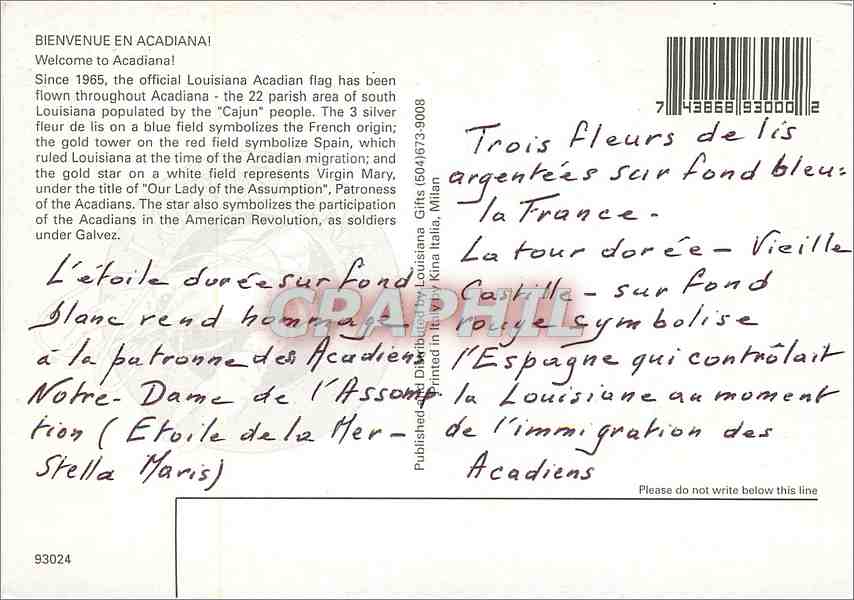 BIENVENUE EN ACADIANA!
Welcome to Acadiana!
Since 1965, the official Louisiana Acadian flag has been
flown throughout Acadiana - the 22 parish area of south
Louisiana populated by the "Cajun" people. The 3 silver
fleur de lis on a blue field symbolizes the French origin;
the gold tower on the red field symbolize Spain, which
ruled Louisiana at the time of the Arcadian migration; and
the gold star on a white field represents Virgin Mary,
under the title of "Our Lady of the Assumption", Patroness
of the Acadians. The star also symbolizes the participation
of the Acadians in the American Revolution, as soldiers
under Galvez.
L'étoile dorée sur fond
blanc rend hommage
à la patronne des Acadiens
Notre-Dame de l'Assomp
tion (Etoile de la Mer-
Stella Maris)
93024
Published and Distributed by Louisiana Gifts (504)673-9008
Printed in Italy by Kina Italia, Milan
7 43868 93000 2
Trois fleurs de lis
argentées sur fond bleu:
la France.
La tour dorée - Vieille
Castille - sur fond
rouge symbolise
l'Espagne qui contrôlait
la Louisiane au moment
de l'immigration des
Acadiens
Please do not write below this line
CPAPHIL